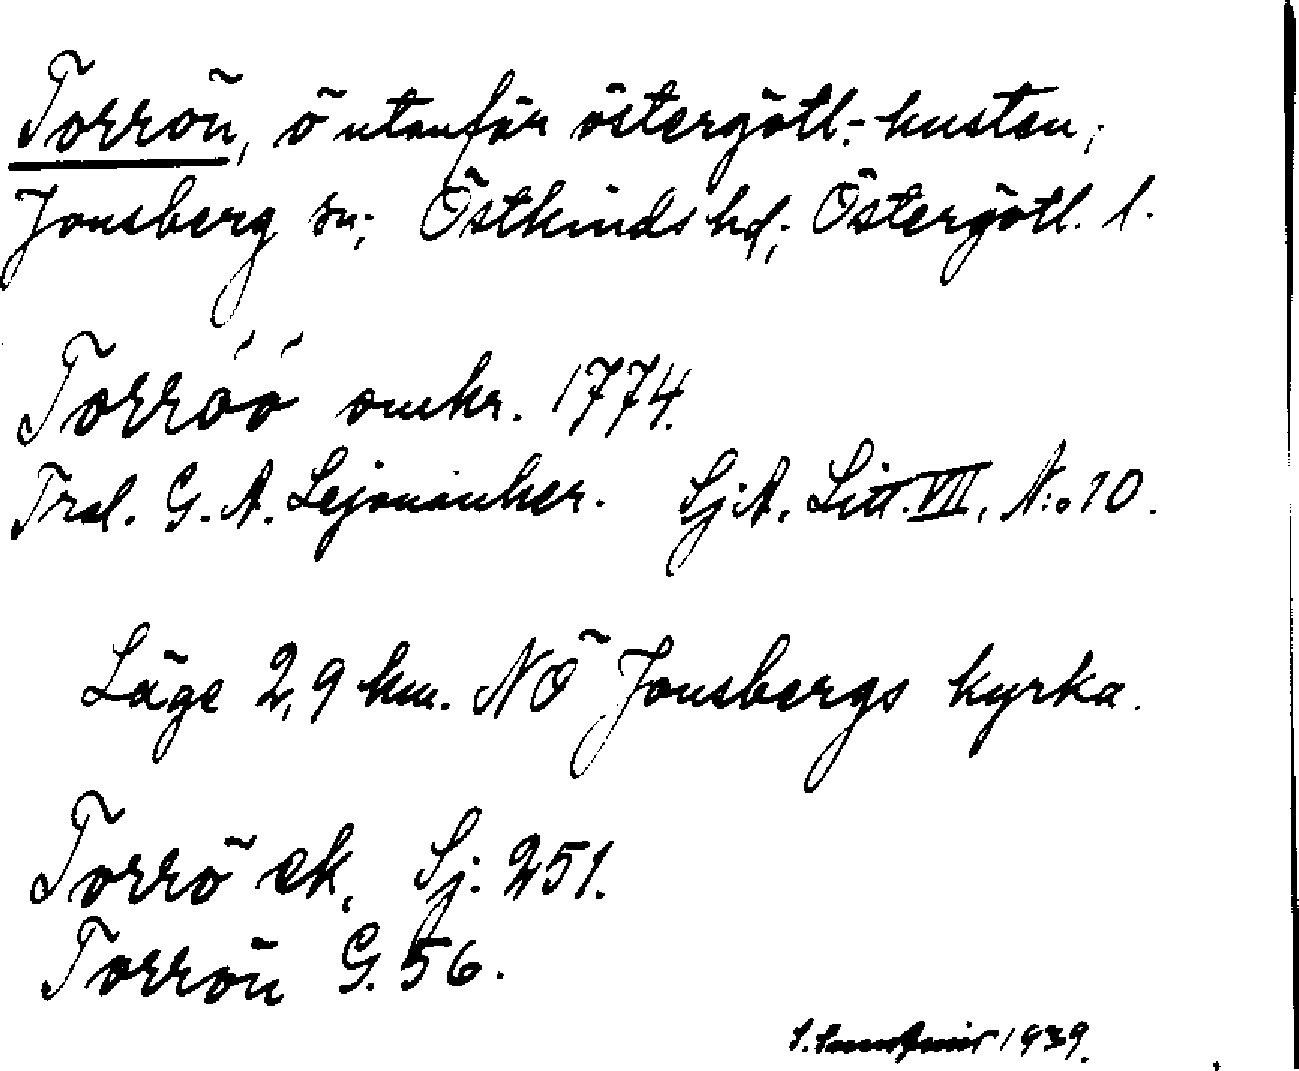 Torrön, ö utanför östergötl.-kusten,
Jonsberg sn; Östkinds hd; Östergötl. l.
Torröö omkr. 1774.
Fral. G. A. Lejonanker. Sj.A. Litt. VII, N:o 10.
Läge 2,9 km. NÖ Jonsbergs kyrka.
Torrö ek. Sj. 251.
Torrön G. 56.
1939.